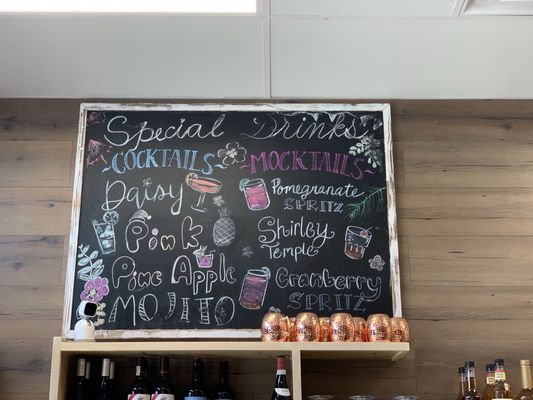 Special Drinks
~COCKTAILS~
~MOCKTAILS~
Daisy
Pink
Pine Apple
MOJITO
Pomegranate
SPRITZ
Shirley
Temple
Cranberry
SPRITZ